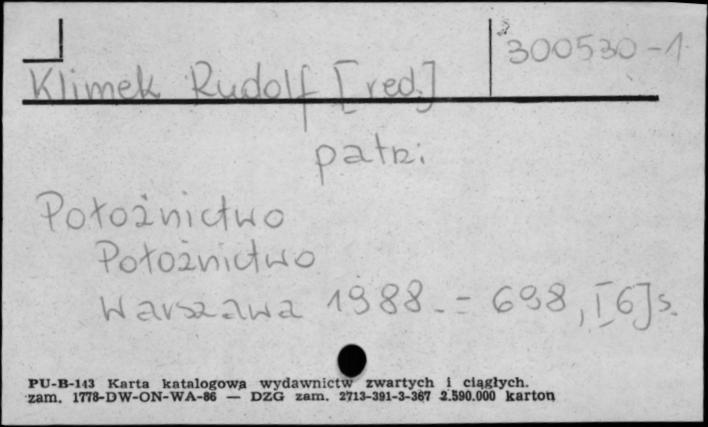 300530-1
Klimek Rudolf [red.]
patrz:
Położnictwo
Położnictwo
Warszawa 1988.- 698, [6] s.
PU-B-143 Karta katalogowa wydawnictw zwartych i ciągłych.
zam. 1778-DW-ON-WA-86 — DZG zam. 2713-391-3-367 2.590.000 karton